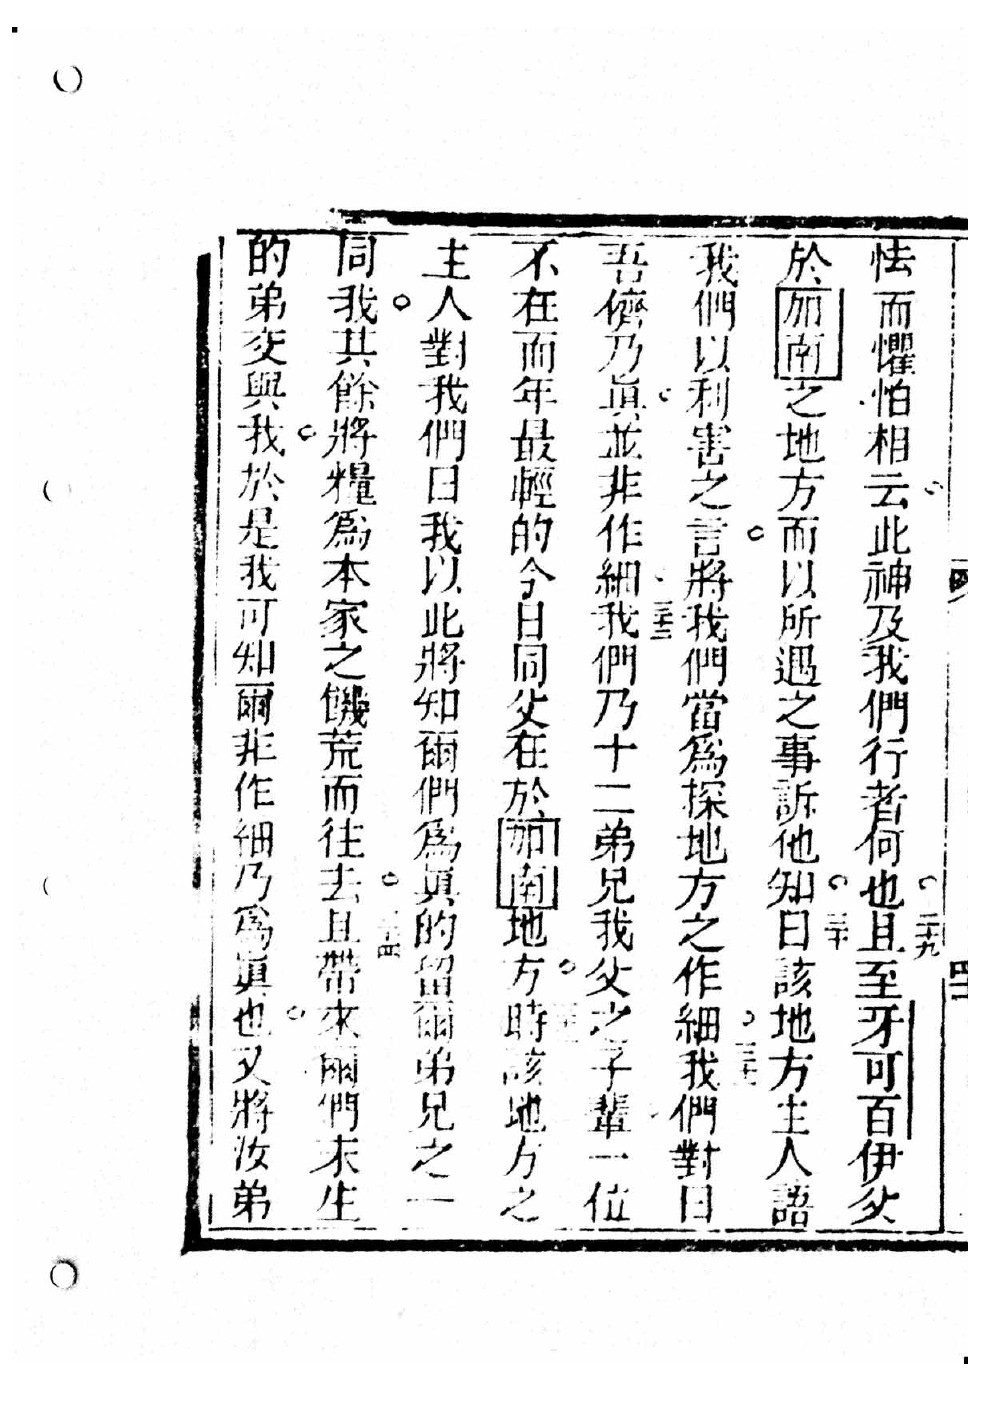 怯而懼怕相云此神及我們行者何也二十九且至牙可百伊父
於加南之地方而以所遇之事訴他知三十曰該地方主人語
我們以利害之言將我們當為探地方之作細三十一我們對曰
吾儕乃眞並非作細三十二我們乃十二弟兄我父之子輩一位
不在而年最輕的今日同父在於加南地方時該地方之
主人對我們曰我以此將知爾們為眞的留爾弟兄之一
同我其餘將糧為本家之饑荒而往去三十四且帶來爾們末生
的弟交與我於是我可知爾非作細乃為眞也又將汝弟